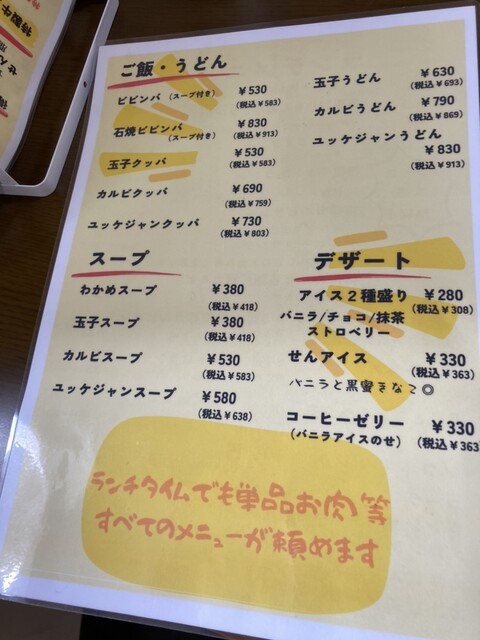 ご飯・うどん
ビビンバ (スープ付き) ￥530
(税込￥583)
石焼ビビンバ (スープ付き) ￥830
(税込￥913)
玉子クッパ ￥530
(税込￥583)
カルビクッパ ￥690
(税込￥759)
ユッケジャンクッパ ￥730
(税込￥803)
玉子うどん ￥630
(税込￥693)
カルビうどん ￥790
(税込￥869)
ユッケジャンうどん
￥830
(税込￥913)
スープ
わかめスープ ￥380
(税込￥418)
玉子スープ ￥380
(税込￥418)
カルビスープ ￥530
(税込￥583)
ユッケジャンスープ ￥580
(税込￥638)
デザート
アイス２種盛り ￥280
(税込￥308)
バニラ/チョコ/抹茶
ストロベリー
せんアイス ￥330
(税込￥363)
バニラと黒蜜きなこ◎
コーヒーゼリー ￥330
(バニラアイスのせ) (税込￥363
ランチタイムでも単品お肉等
すべてのメニューが頼めます